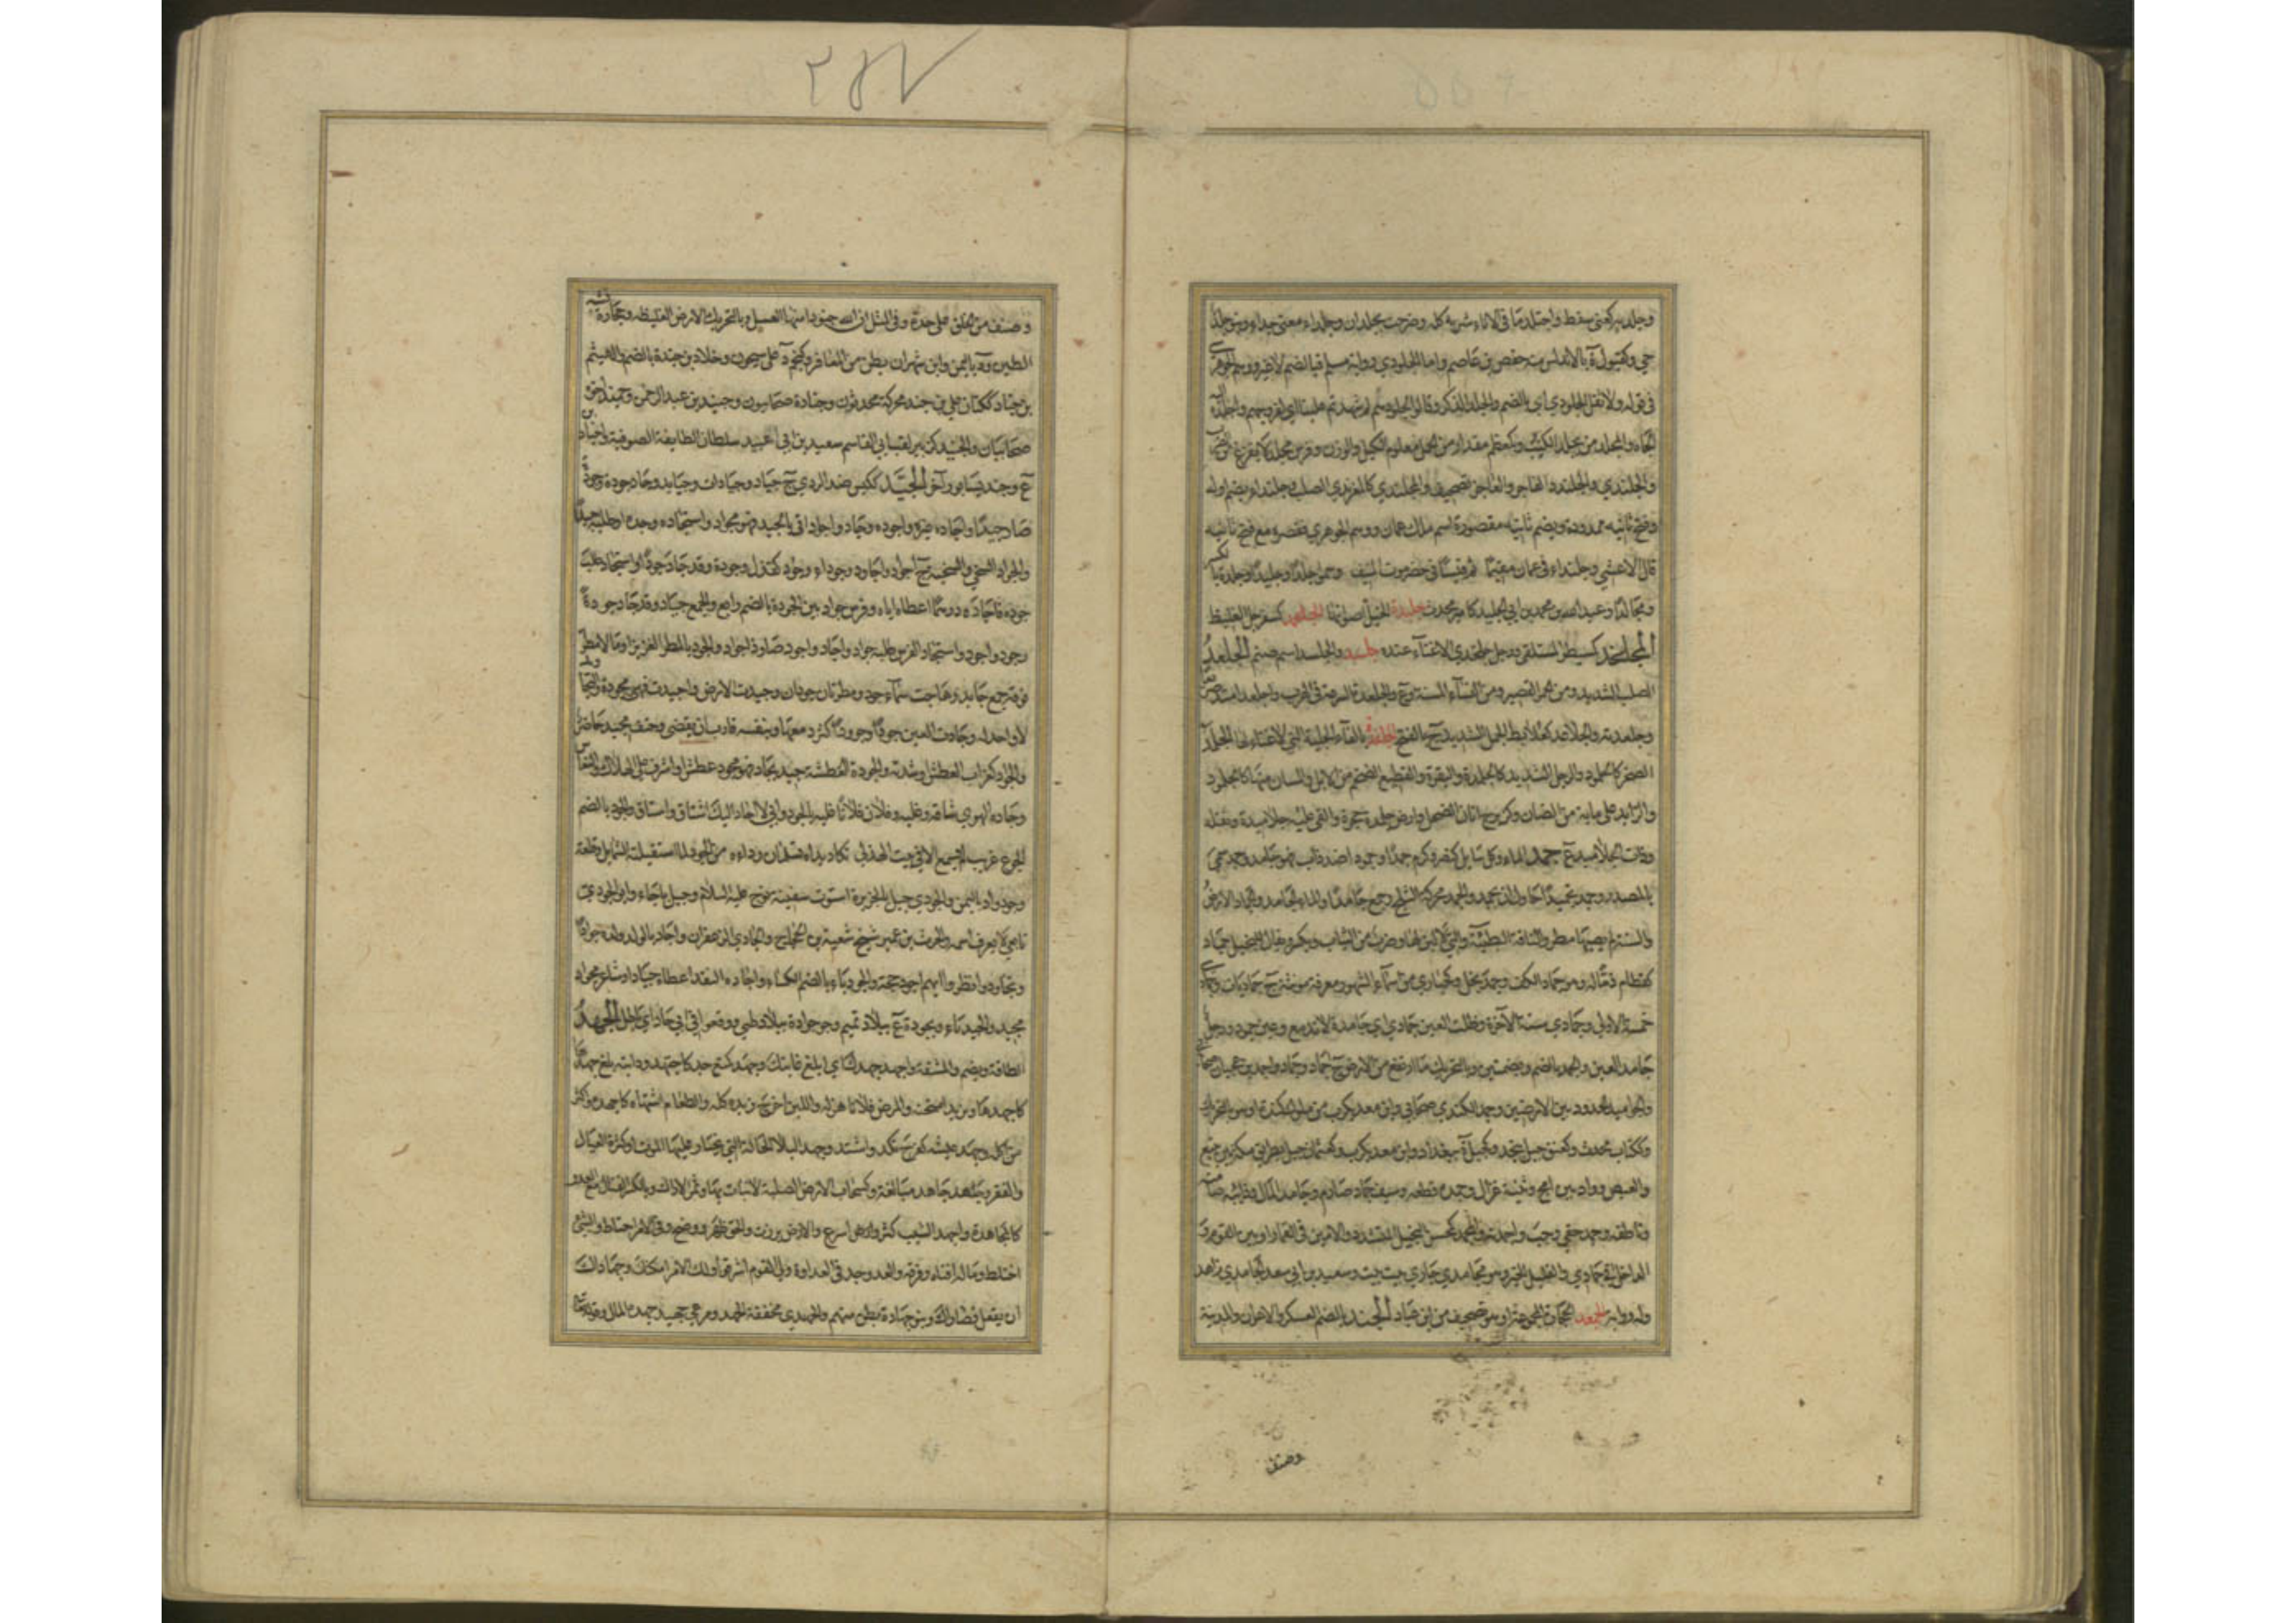 وجلد به كعني سقط واجتلد ما في الاناء شربه كله وصرحت بجلدان وجلداء بمعنى جداء وبنو جلد
حي وكقبول ة بالاندلس منه حفص بن عاصم واما الجلودي رواية مسلم فبالضم لا غير ووهم الجوهري
في قوله ولا تقل الجلودي اي بالضم والجلد الذكر وقالوا لجلودهم لم شهدتم علينا اي لفروجهم
والمجلد من يجلد الكتب وكمعظم مقدار من الحمل معلوم الكيل والوزن وفرس مجلد لا يفزع من الضرب
والجلندي والجلندد الفاجر والعاجز تصحيف والمجلندي كالمعرندي الصلب وجلنداء بضم اوله
وفتح ثانيه ممدودة وبضم ثانيه مقصورة اسم ملك عمان ووهم الجوهري فقصره مع فتح ثانيه
قال الاعشي وجلنداء في عمان مقيما ثم قيسا في حضرموت المنيف وسموا جلدا وجليدا وجلدة بالكسر
ومجالدا وعبد الله بن محمد بن ابي الجليد كامير محدث جلبدة الخيل اصواتها الجلحمد كسفرجل الغليظ
المجلخد كمسبطر المستلقي ورجل جلخدي لا غناء عنده جلسد والجلسد اسم صنم الجلعد
الصلب الشديد ومن الحمر القصير ومن النساء المسنة وع والجلعدة السرعة في الهرب واجلعد امتد
وجلعدته والجلاعد كعلابط الجمل الشديد ج بالفتح الجلفدة بالفاء الجلبة التي لا غناء لها الجلمد
الصخر كالجلمود والرجل الشديد كالجلمدة والبقرة والقطيع الضخم من الابل والمسان منها كالجلمود
والزايد على ماية من الضان وكزبرج اتان الضحل وارض جلمدة حجرة والقى عليه جلاميده وثقله
وذات الجلاميد ع جمد الماء وكل سايل كنصر وكرم جمدا وجمودا ضد ذاب فهو جامد وجمد سمي
بالمصدر وجمد تجميدا حاول ان يجمد والجمد محركة الثلج وجمع جامد والماء الجامد والجماد الارض
والسنة لم يصبها مطر والناقة البطيئة والتي لا لبن لها وضرب من الثياب ويكسر ويقال للبخيل جماد
كقطام ذما له وهو جماد الكف وجمد بخل وكحبارى من اسماء الشهور معرفة مؤنثة ج جماديات وجمادي
خمسة الاولى وجمادي ستة الآخرة وظلت العين جمادي اي جامدة لا تدمع وعين جمود ورجل
جامد العين والجمد بالضم وبضمتين وبالتحريك ما ارتفع من الارض ج اجماد وجماد واجمد بن عجيان صحابي
والجوامد الحدود بين الارضين وجمد الكندي صحابي وابن معديكرب من ملوك كندة او هو بالتحريك
وككتاب محدث وكعنق جبل بنجد وكجبل ة ببغداد وابن معديكرب وكعثمان جبل بطريق مكة بين ينبع
والعيص وواد بين امج وثنية غزال وجمده قطعه وسيف جماد صارم وجامد المال وذايبه صامته
وناطقه وجمد حقي وجب واجمدته والمجمد كمحسن البخيل المتشدد والامين في القمار او بين القوم
الداخل في جمادي والقليل الخير وهو مجامدي جاري بيت بيت وسعيد بن ابي سعد الجامدي زاهد
وله رواية الجمعد الحجارة المجموعة او هو تصحيف من ابن عباد الجند بالضم العسكر والاعوان والمدينة
وصنف
٢٥٧
وصنف من الخلق على حدة وفي المثل ان لله جنودا منها العسل وبالتحريك الارض الغليظة وحجارة تشبه
الطين ود باليمن وابن شهران بطن من المعافر وكنجم د على سيحون وخلاد بن جندة بالضم والهيثم
بن جناد ككتان علي بن جند محركة محدثون وجنادة صحابيون وجنيد بن عبد الرحمن وحميد اخوه
صحابيان والجنيد كزبير لقب ابي القاسم سعيد بن عبيد سلطان الطايفة الصوفية واجناد
ع وجنديسابور آخر الجيد ككيس ضد الردي ج جياد وجيادات وجيايد وجاد جودة وجودة
صار جيدا واجاده غيره واجوده وجاد واجاد اتي بالجيد فهو مجواد واستجاده وجده او طلبه جيدا
والجواد السخي والسخية ج اجواد واجاود وجوداء وجود كقذل وجودة وقد جاد جودا واستجاد طلب
جوده فاجاده درهما اعطاه اياه وفرس جواد بين الجودة بالضم رايع والجمع جياد وقد جاد جودة
وجود واجود واستجاد الفرس طلبه جوادا واجاد واجود صار ذا جواد والجود المطر الغزير او ما لا مطر
فوقه جمع جايد وهاجت سماء جود ومطرتان جودان وجيدت الارض واجيدت فهي مجودة والتجاويد
لا واحد له وجادت العين جودا وجوودا كثر دمعها وبنفسه قارب ان يقضي وحتف مجيد حاضر
والجواد كغراب العطش او شدته والجودة العطشة جيد يجاد فهو مجود عطش او اشرف على الهلاك والنعاس
وجاده الهوي شاقه وغلبه وفلان فلانا غلبه بالجود واني لاجاد اليك اشتاق واساق والجود بالضم
الجوع غريب لم يسمع الا في بيت الهذلي تكاد يداه تسلمان رداءه من الجود لما استقبلته الشمايل وقلعة
وجود واد باليمن والجودي جبل بالجزيرة استوت سفينة نوح عليه السلام وجبل باجاء وابو الجودي
تابعي لا يعرف اسمه والحرث بن عمير شيخ شعبة بن الحجاج والجادي الزعفران واجاد بالولد ولده جوادا
وتجاودوا نظروا ايهم اجود حجة والجودياء بالضم الكساء واجاده النقد اعطاه جيادا وشاعر مجواد
مجيد والجيداء وجودة ع ببلاد تميم وجوجوادة ببلاد طي ووقعوا في ابي جاد اي باطل الجهد
الطاقة ويضم والمشقة واجهد جهدك اي ابلغ غايتك وجهد كمنع جد كاجتهد ودابته بلغ جهدها
كاجهدها وبزيد امتحنه والمرض فلانا هزله واللبن اخرج زبده كله والطعام اشتهاه كاجهده واكثر
من اكله وجهد عيشه كفرح نكد واشتد وجهد البلاء الحالة التي يختار عليها الموت او كثرة العيال
والفقر وجهد جاهد مبالغة وكسحاب الارض الصلبة لا نبات بها وثمر الاراك وبالكسر القتال مع العدو
كالمجاهدة واجهد الشيب كثر واسرع والارض برزت والحق ظهر ووضح وفي الامر احتاط والشي
اختلط وماله افناه وفرقه والعدو جد في العداوة ولي القوم اشرفوا ولك الامر امكنك وجهاداك
ان يفعل قصاراك وبنو جهادة بطن منهم والجهيدي مخففة الجهد ومرعي جهيد جهده المال